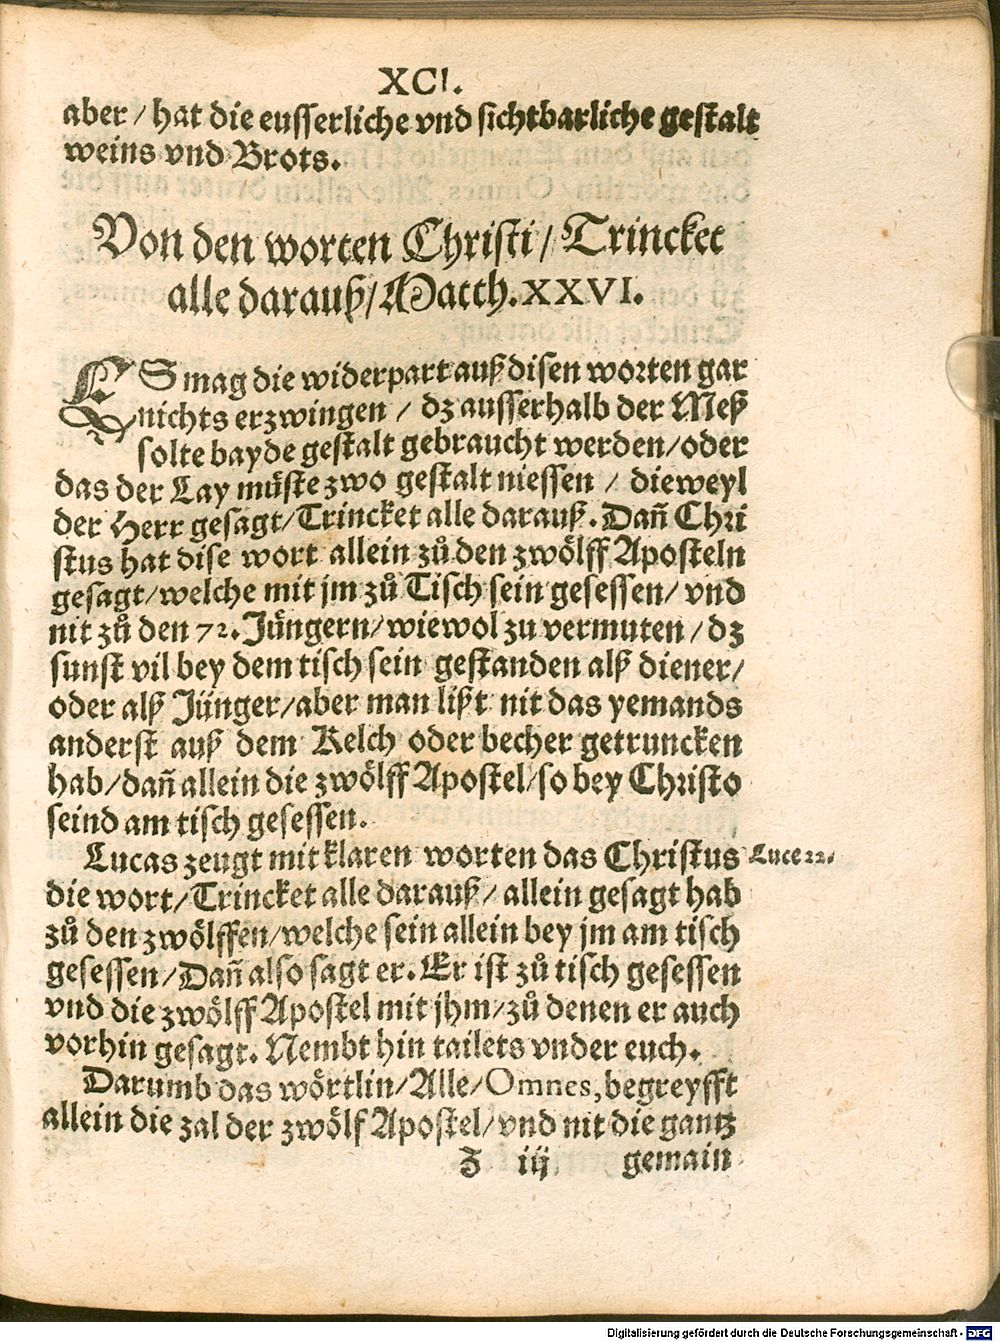 XCI.
aber / hat die eusserliche vnd sichtbarliche gestalt
weins vnd Brots.
Von den worten Christi / Trincket
alle darauß / Matth. XXVI.
ES mag die widerpart auß disen worten gar
nichts erzwingen / dz ausserhalb der Meß
solte bayde gestalt gebraucht werden / oder
das der Lay müste zwo gestalt niessen / dieweyl
der Herr gesagt / Trincket alle darauß. Dañ Chri
stus hat dise wort allein zů den zwölff Aposteln
gesagt / welche mit jm zů Tisch sein gesessen / vnd
nit zů den 72. Jüngern / wiewol zu vermuten / dz
sunst vil bey dem tisch sein gestanden alß diener /
oder alß Jünger / aber man lißt nit das yemands
anderst auß dem Kelch oder becher getruncken
hab / dañ allein die zwölff Apostel / so bey Christo
seind am tisch gesessen.
Lucas zeugt mit klaren worten das Christus
Luce 22.
die wort / Trincket alle darauß / allein gesagt hab
zů den zwölffen / welche sein allein bey jm am tisch
gesessen / Dañ also sagt er. Er ist zů tisch gesessen
vnd die zwölff Apostel mit jhm / zů denen er auch
vorhin gesagt. Nembt hin tailets vnder euch.
Darumb das wörtlin / Alle / Omnes, begreyfft
allein die zal der zwölf Apostel / vnd nit die gantz
Z iij gemain
Digitalisierung gefördert durch die Deutsche Forschungsgemeinschaft - DFG